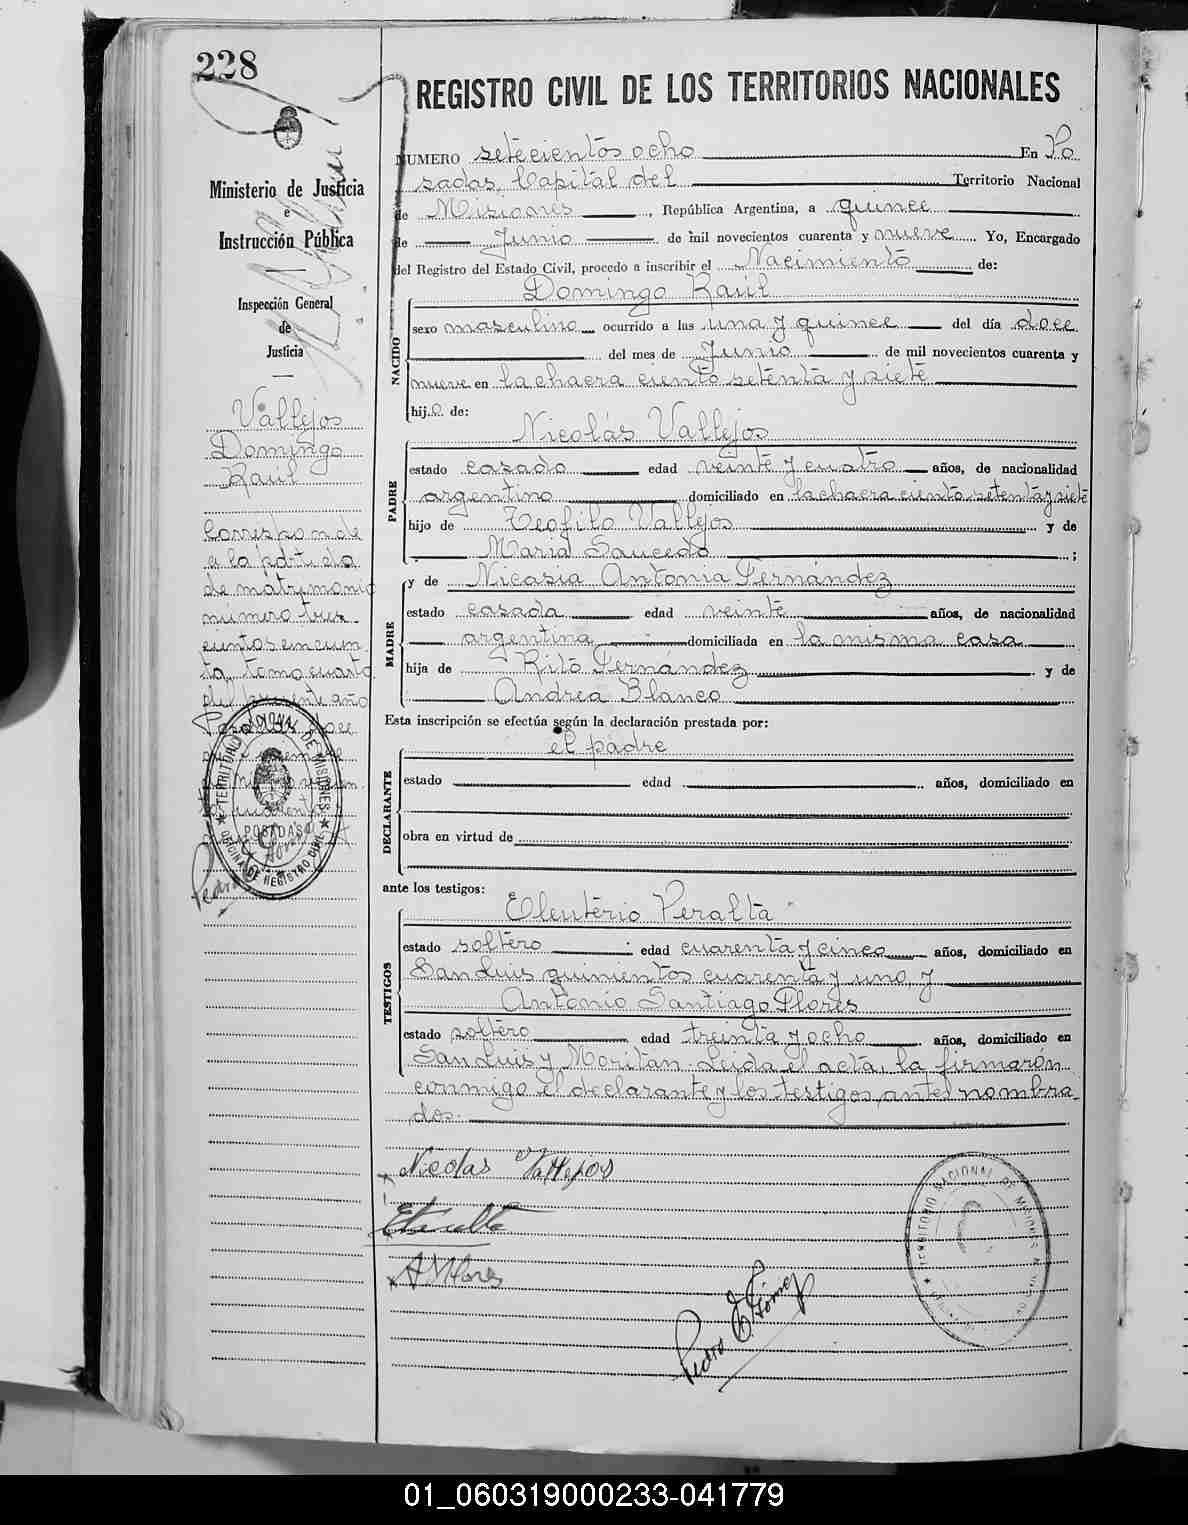 228
REGISTRO CIVIL DE LOS TERRITORIOS NACIONALES
Ministerio de Justicia
e
Instrucción Pública
Inspección General
de
Justicia
Vallejos
Domingo
Raúl
Corresponde
a la partida
de matrimonio
número tres
cientos
ta, tomo cuarto
del presente año
Posadas, doce
TERRITORIO NACIONAL DE MISIONES
POSADAS
OFICINA DE REGISTRO CIVIL
Pedro
NUMERO setecientos ocho En Po
sadas, Capital del Territorio Nacional
de Misiones, República Argentina, a quince
de Junio de mil novecientos cuarenta y nueve. Yo, Encargado
del Registro del Estado Civil, procedo a inscribir el Nacimiento de:
NACIDO
Domingo Raúl
sexo masculino ocurrido a las una y quince del día doce
del mes de Junio de mil novecientos cuarenta y
nueve en la chacra ciento setenta y siete
hijo de:
PADRE
Nicolás Vallejos
estado casado edad veinte y cuatro años, de nacionalidad
argentino domiciliado en la chacra ciento setenta y siete
hijo de Teofilo Vallejos y de
Maria Saucedo ;
MADRE
y de Nicasia Antonia Fernández
estado casada edad veinte años, de nacionalidad
argentina domiciliada en la misma casa
hija de Rito Fernández y de
Andrea Blanco
Esta inscripción se efectúa según la declaración prestada por:
DECLARANTE
el padre
estado edad años, domiciliado en
obra en virtud de
ante los testigos:
TESTIGOS
Eleuterio Peralta
estado soltero edad cuarenta y cinco años, domiciliado en
San Luis quinientos cuarenta y uno, y
Antonio Santiago Flores
estado soltero edad treinta y ocho años, domiciliado en
San Luis y Moritan. Leida el acta, la firmarón
conmigo el declarante y los testigos antes nombra-
dos.
Nicolas Vallejos
A S Flores
Pedro E. Gómez
TERRITORIO NACIONAL DE MISIONES
01_060319000233-041779